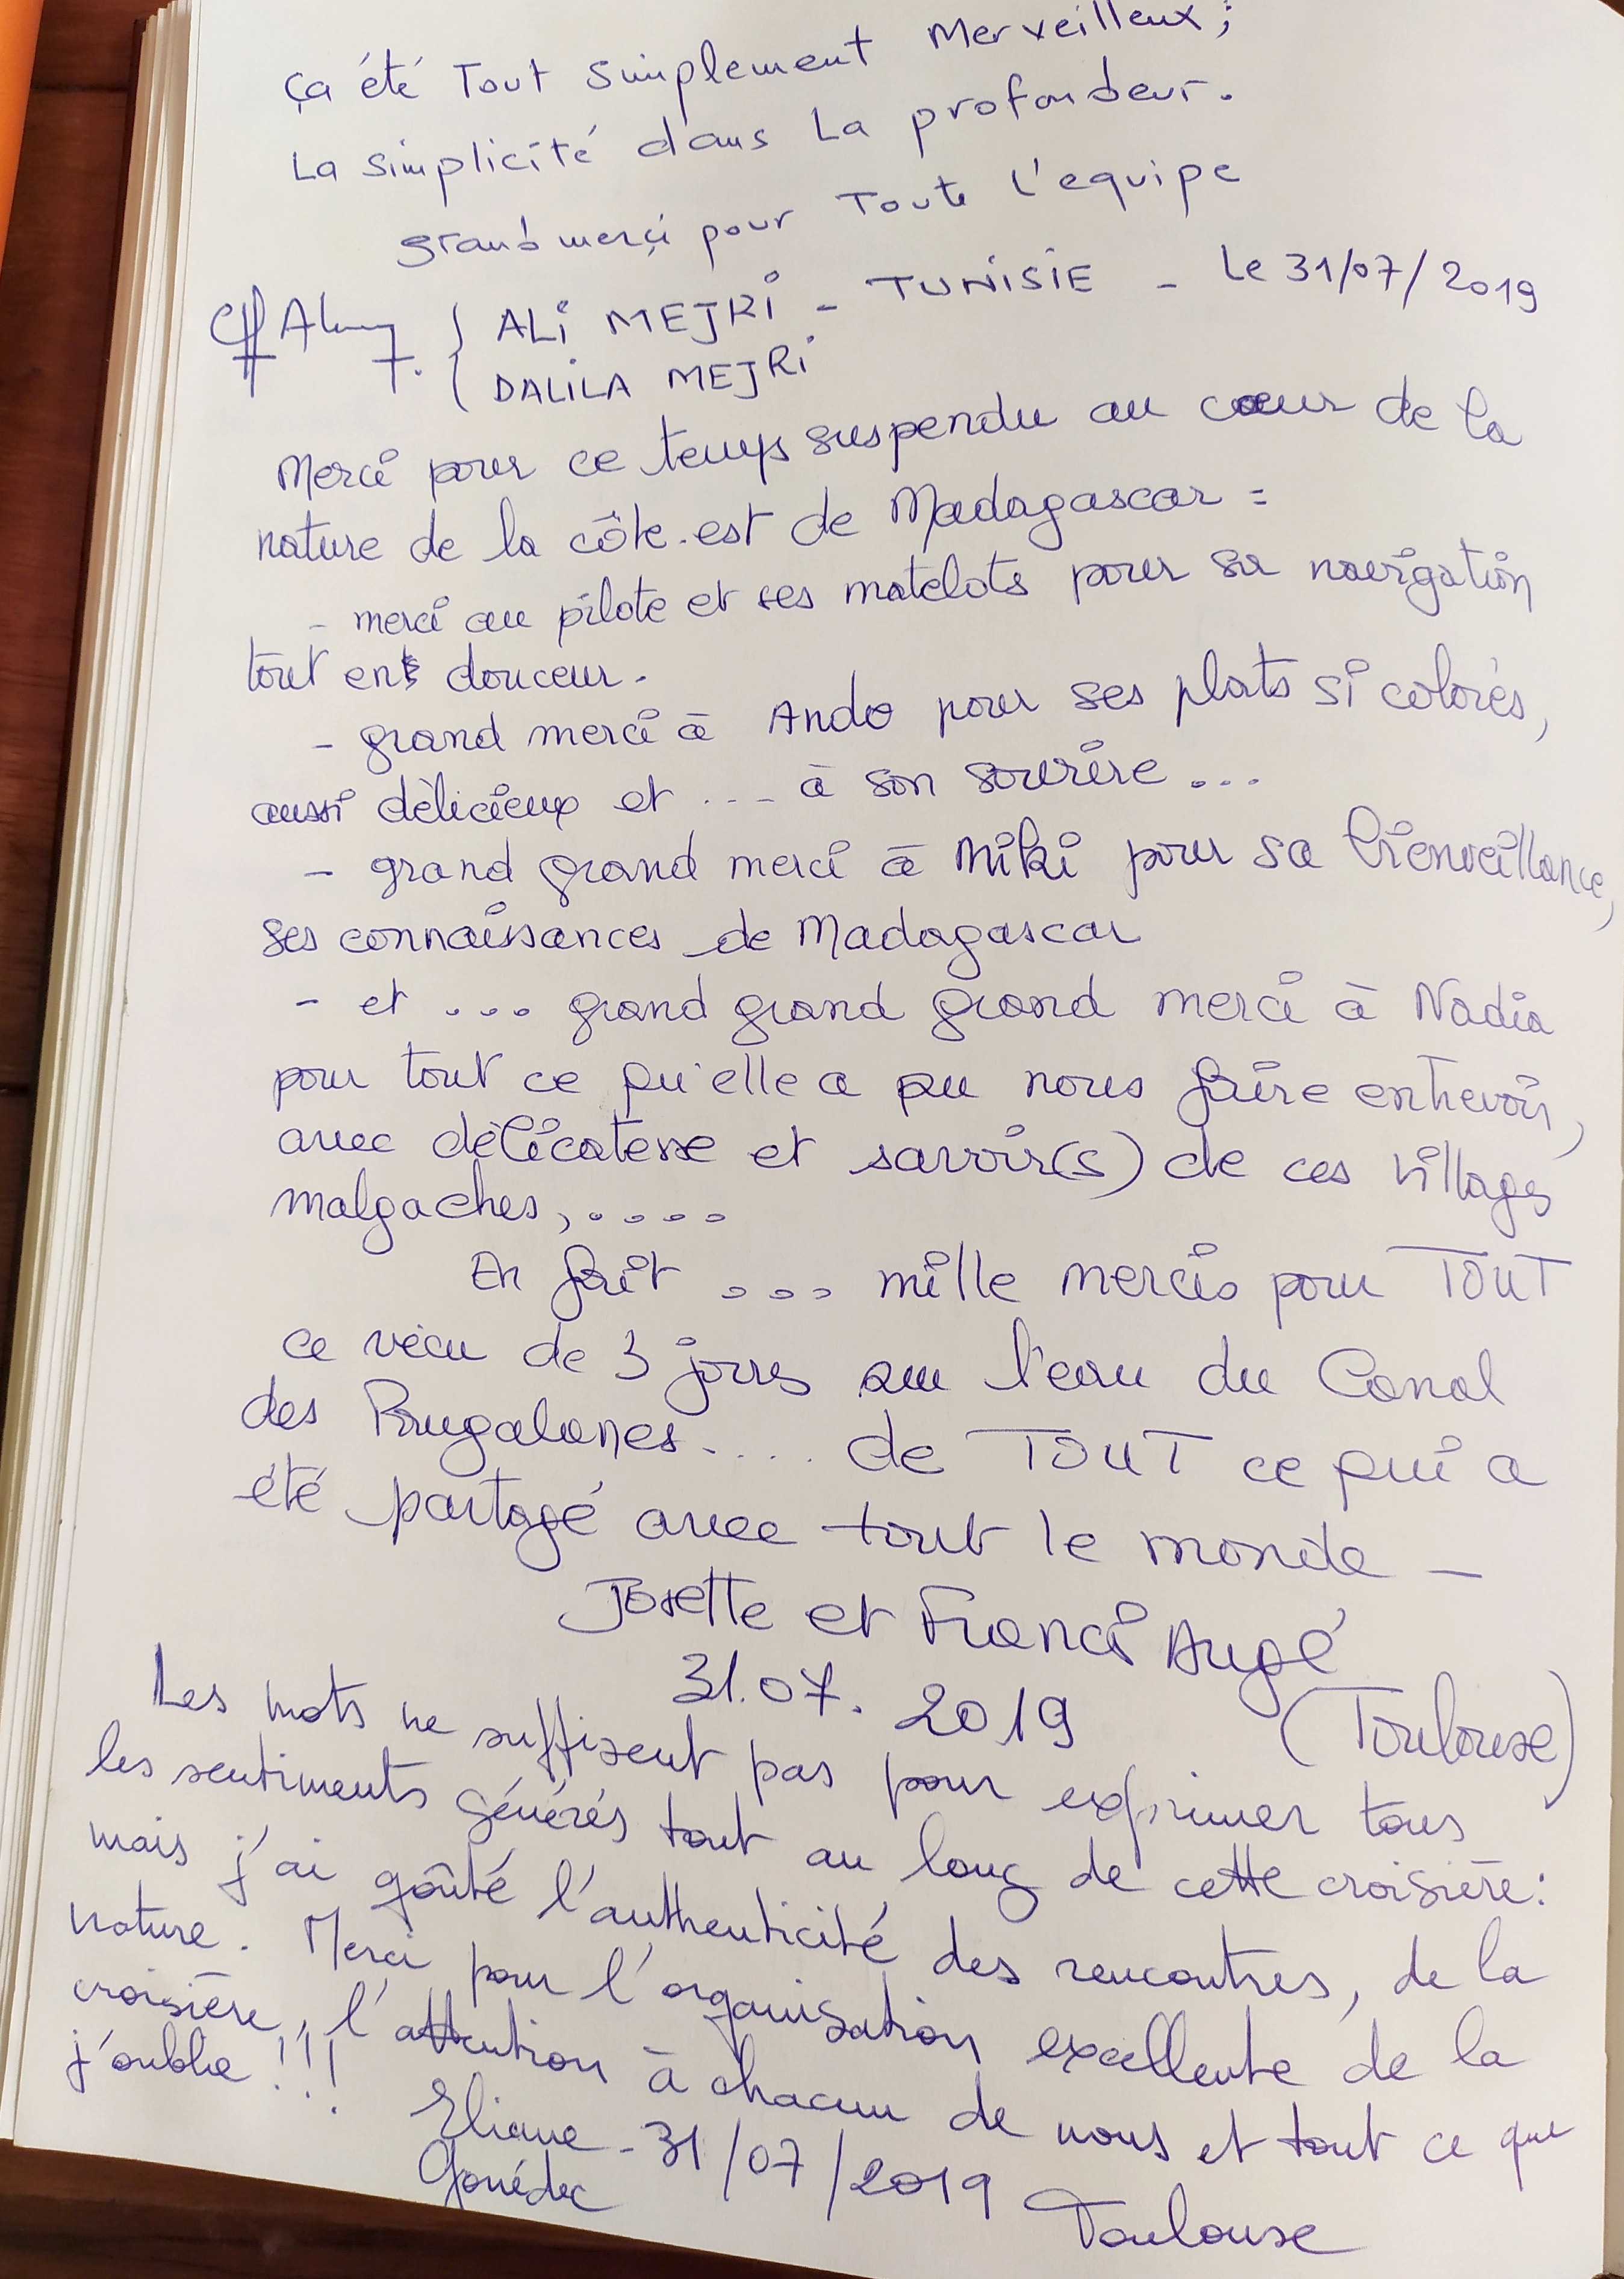 ça été Tout simplement Merveilleux;
La simplicité dans La profondeur.
grand merçi pour Toute l'equipe
ALi MEJRi - TUNiSiE - Le 31/07/2019
DALiLA MEJRi
Merci pour ce temps suspendu au cœur de la
nature de la côte est de Madagascar =
- merci au pilote et ses matelots pour sa navigation
tout en douceur.
- grand merci à Ando pour ses plats si colorés,
aussi délicieux et ... à son sourire ...
- grand grand merci à Miki pour sa bienveillance,
ses connaissances de Madagascar
- et ... grand grand grand merci à Nadia
pour tout ce qu'elle a pu nous faire entrevoir,
avec délicatesse et savoir(s) de ces villages
malgaches, ....
En fait ... mille mercis pour TOUT
ce vécu de 3 jours sur l'eau du Canal
des Pangalanes.... de TOUT ce qui a
été partagé avec tout le monde -
Josette et Franci Augé
31.07.2019 (Toulouse)
Les mots ne suffisent pas pour exprimer tous
les sentiments générés tout au long de cette croisière:
mais j'ai goûté l'authenticité des rencontres, de la
nature. Merci pour l'organisation excellente de la
croisière, l'attention à chacun de nous et tout ce que
j'oublie !!!
Eliane - 31/07/2019 Toulouse
Gouédec